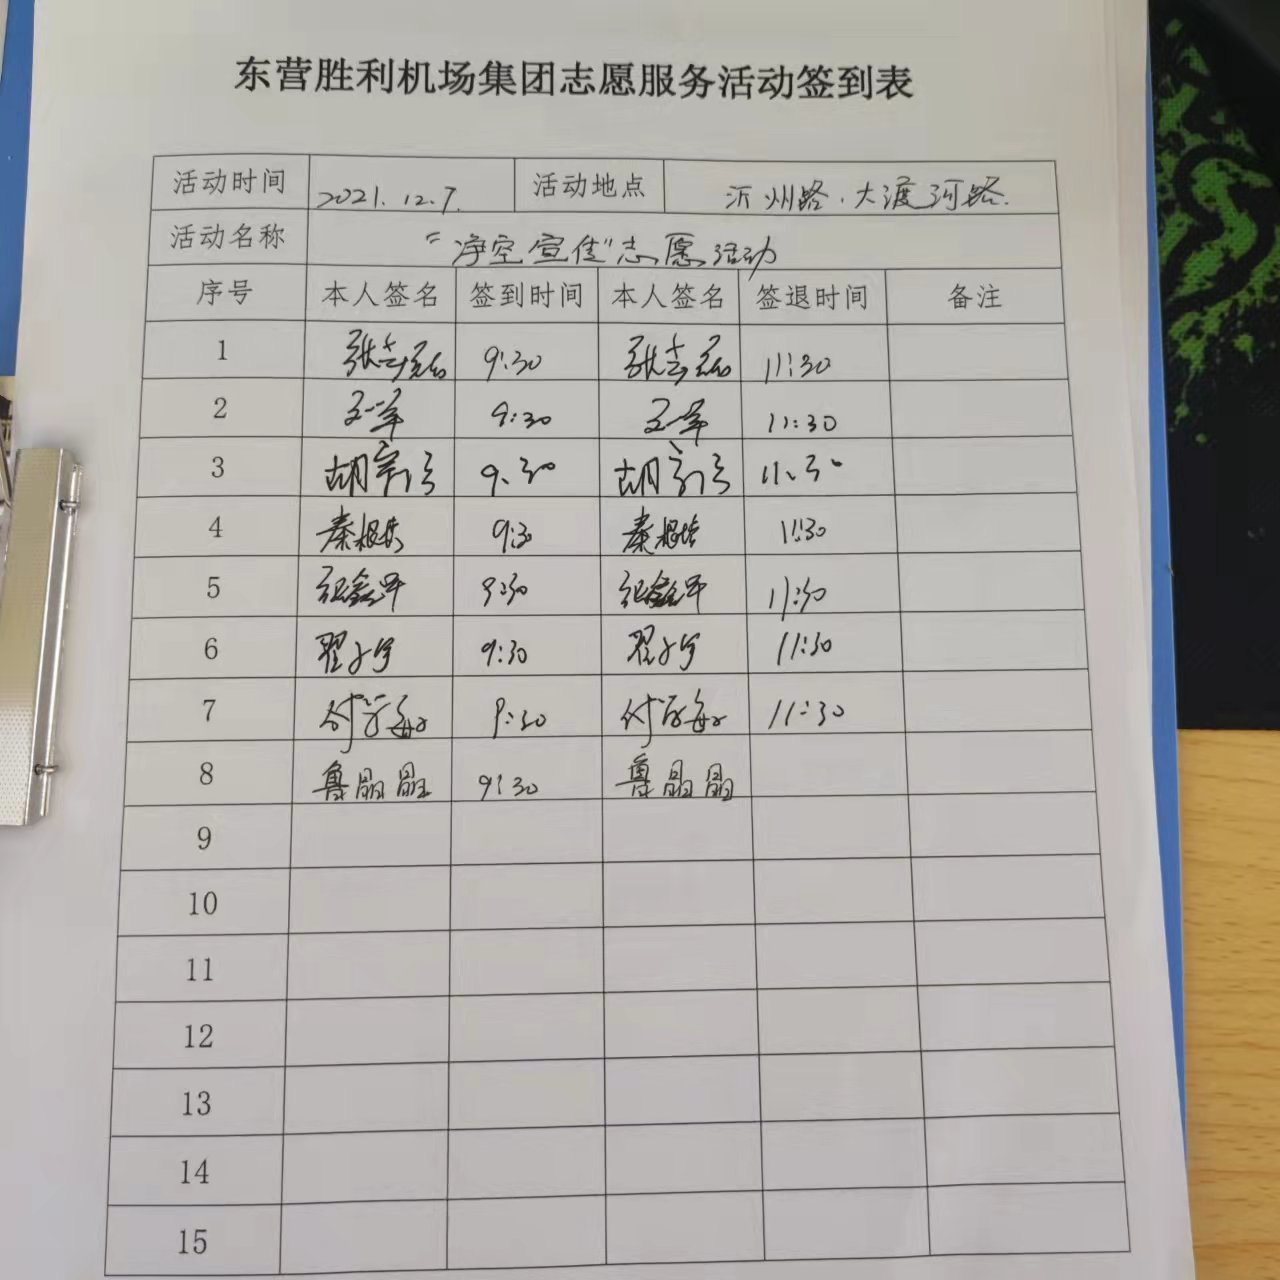 东营胜利机场集团志愿服务活动签到表
活动时间 2021.12.7. 活动地点 沂州路.大渡河路.
活动名称 "净空宣传"志愿活动
序号 本人签名 签到时间 本人签名 签退时间 备注
1 9:30 11:30
2 9:30 11:30
3 胡 9:30 胡 11:30
4 秦 9:30 秦 11:30
5 9:30 11:30
6 翟 9:30 翟 11:30
7 付 9:30 付 11:30
8 鲁晶晶 9:30 鲁晶晶
9
10
11
12
13
14
15